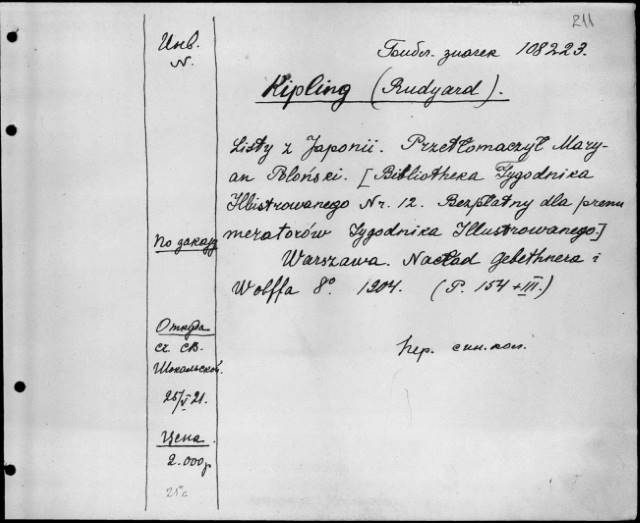 211
Инв.
N.
Библ. значек 108223.
Kipling (Rudyard).
Listy z Japonii. Przetłomaczył Mary-
an Płoński. [Bibliotheka Tygodnika
Illustrowanego Nr. 12. Bezpłatny dla prenu
meratorów Tygodnika Illustrowanego.]
Warszawa. Nacład Gebethnera i
Wolffa 8° 1904. (P. 154 + III.)
По заказу
Откуда
ст. св.
25/V 21.
Цена
2.000р
25°